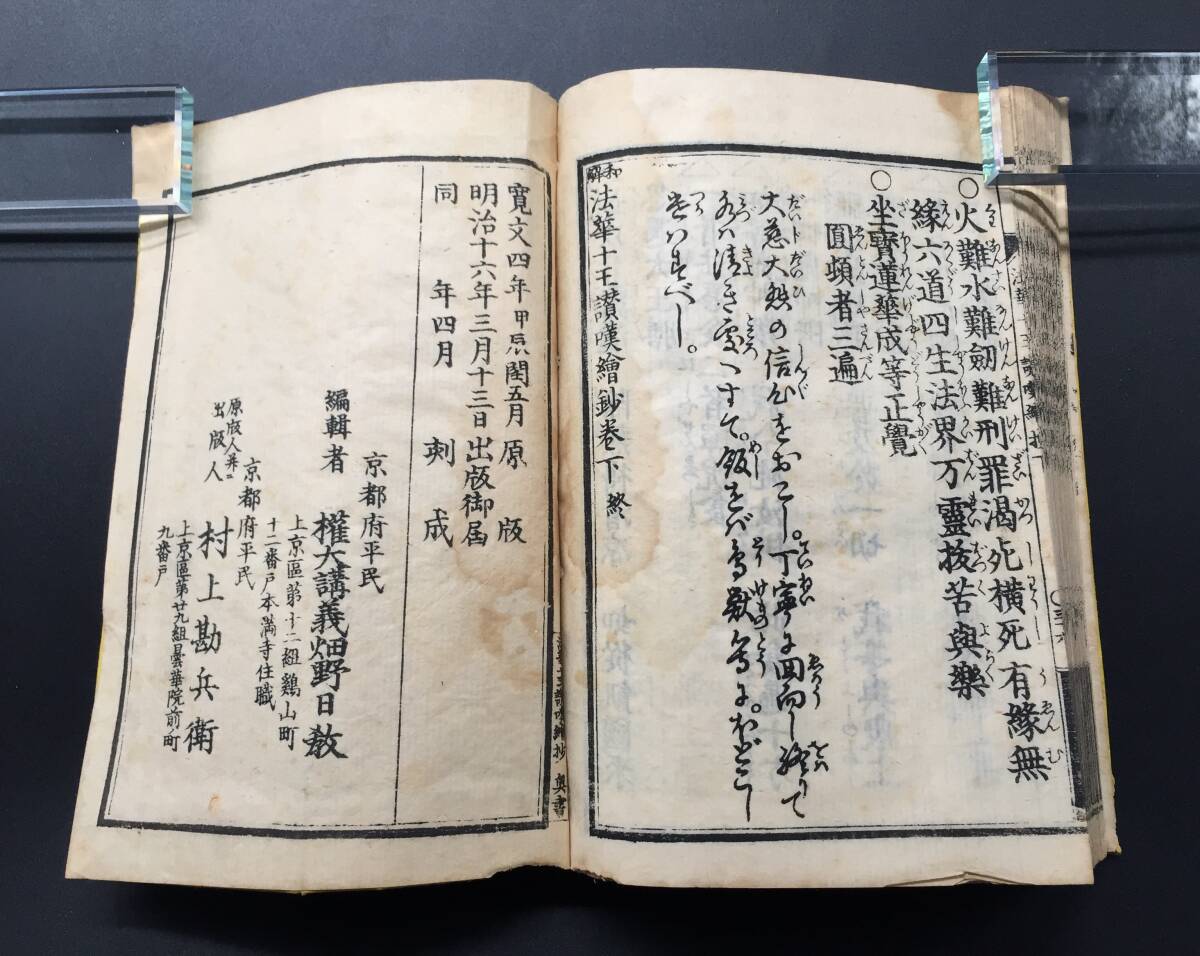 ○火難水難劔難刑罪渇死横死有縁無
縁六道四生法界万霊拔苦與樂
○坐寳蓮華成等正覺
圓頓者三遍
大慈大悲の信心をおこし。丁寧に回向し終りて
水ハ清き處へすて。飯をバ鳥獣等にほどこし
べし。
和解 法華十王讃嘆繪鈔卷下 終
寛文四年甲辰閏五月 原版
明治十六年三月十三日出版御届
同 年四月 刻成
京都府平民
編輯者 權大講義畑野日教
上京區第十二組鶏山町
十二番戸本満寺住職
京都府平民
原版人并ニ
出版人 村上勘兵衛
上京區第廿九組曇華院前町
九番戸